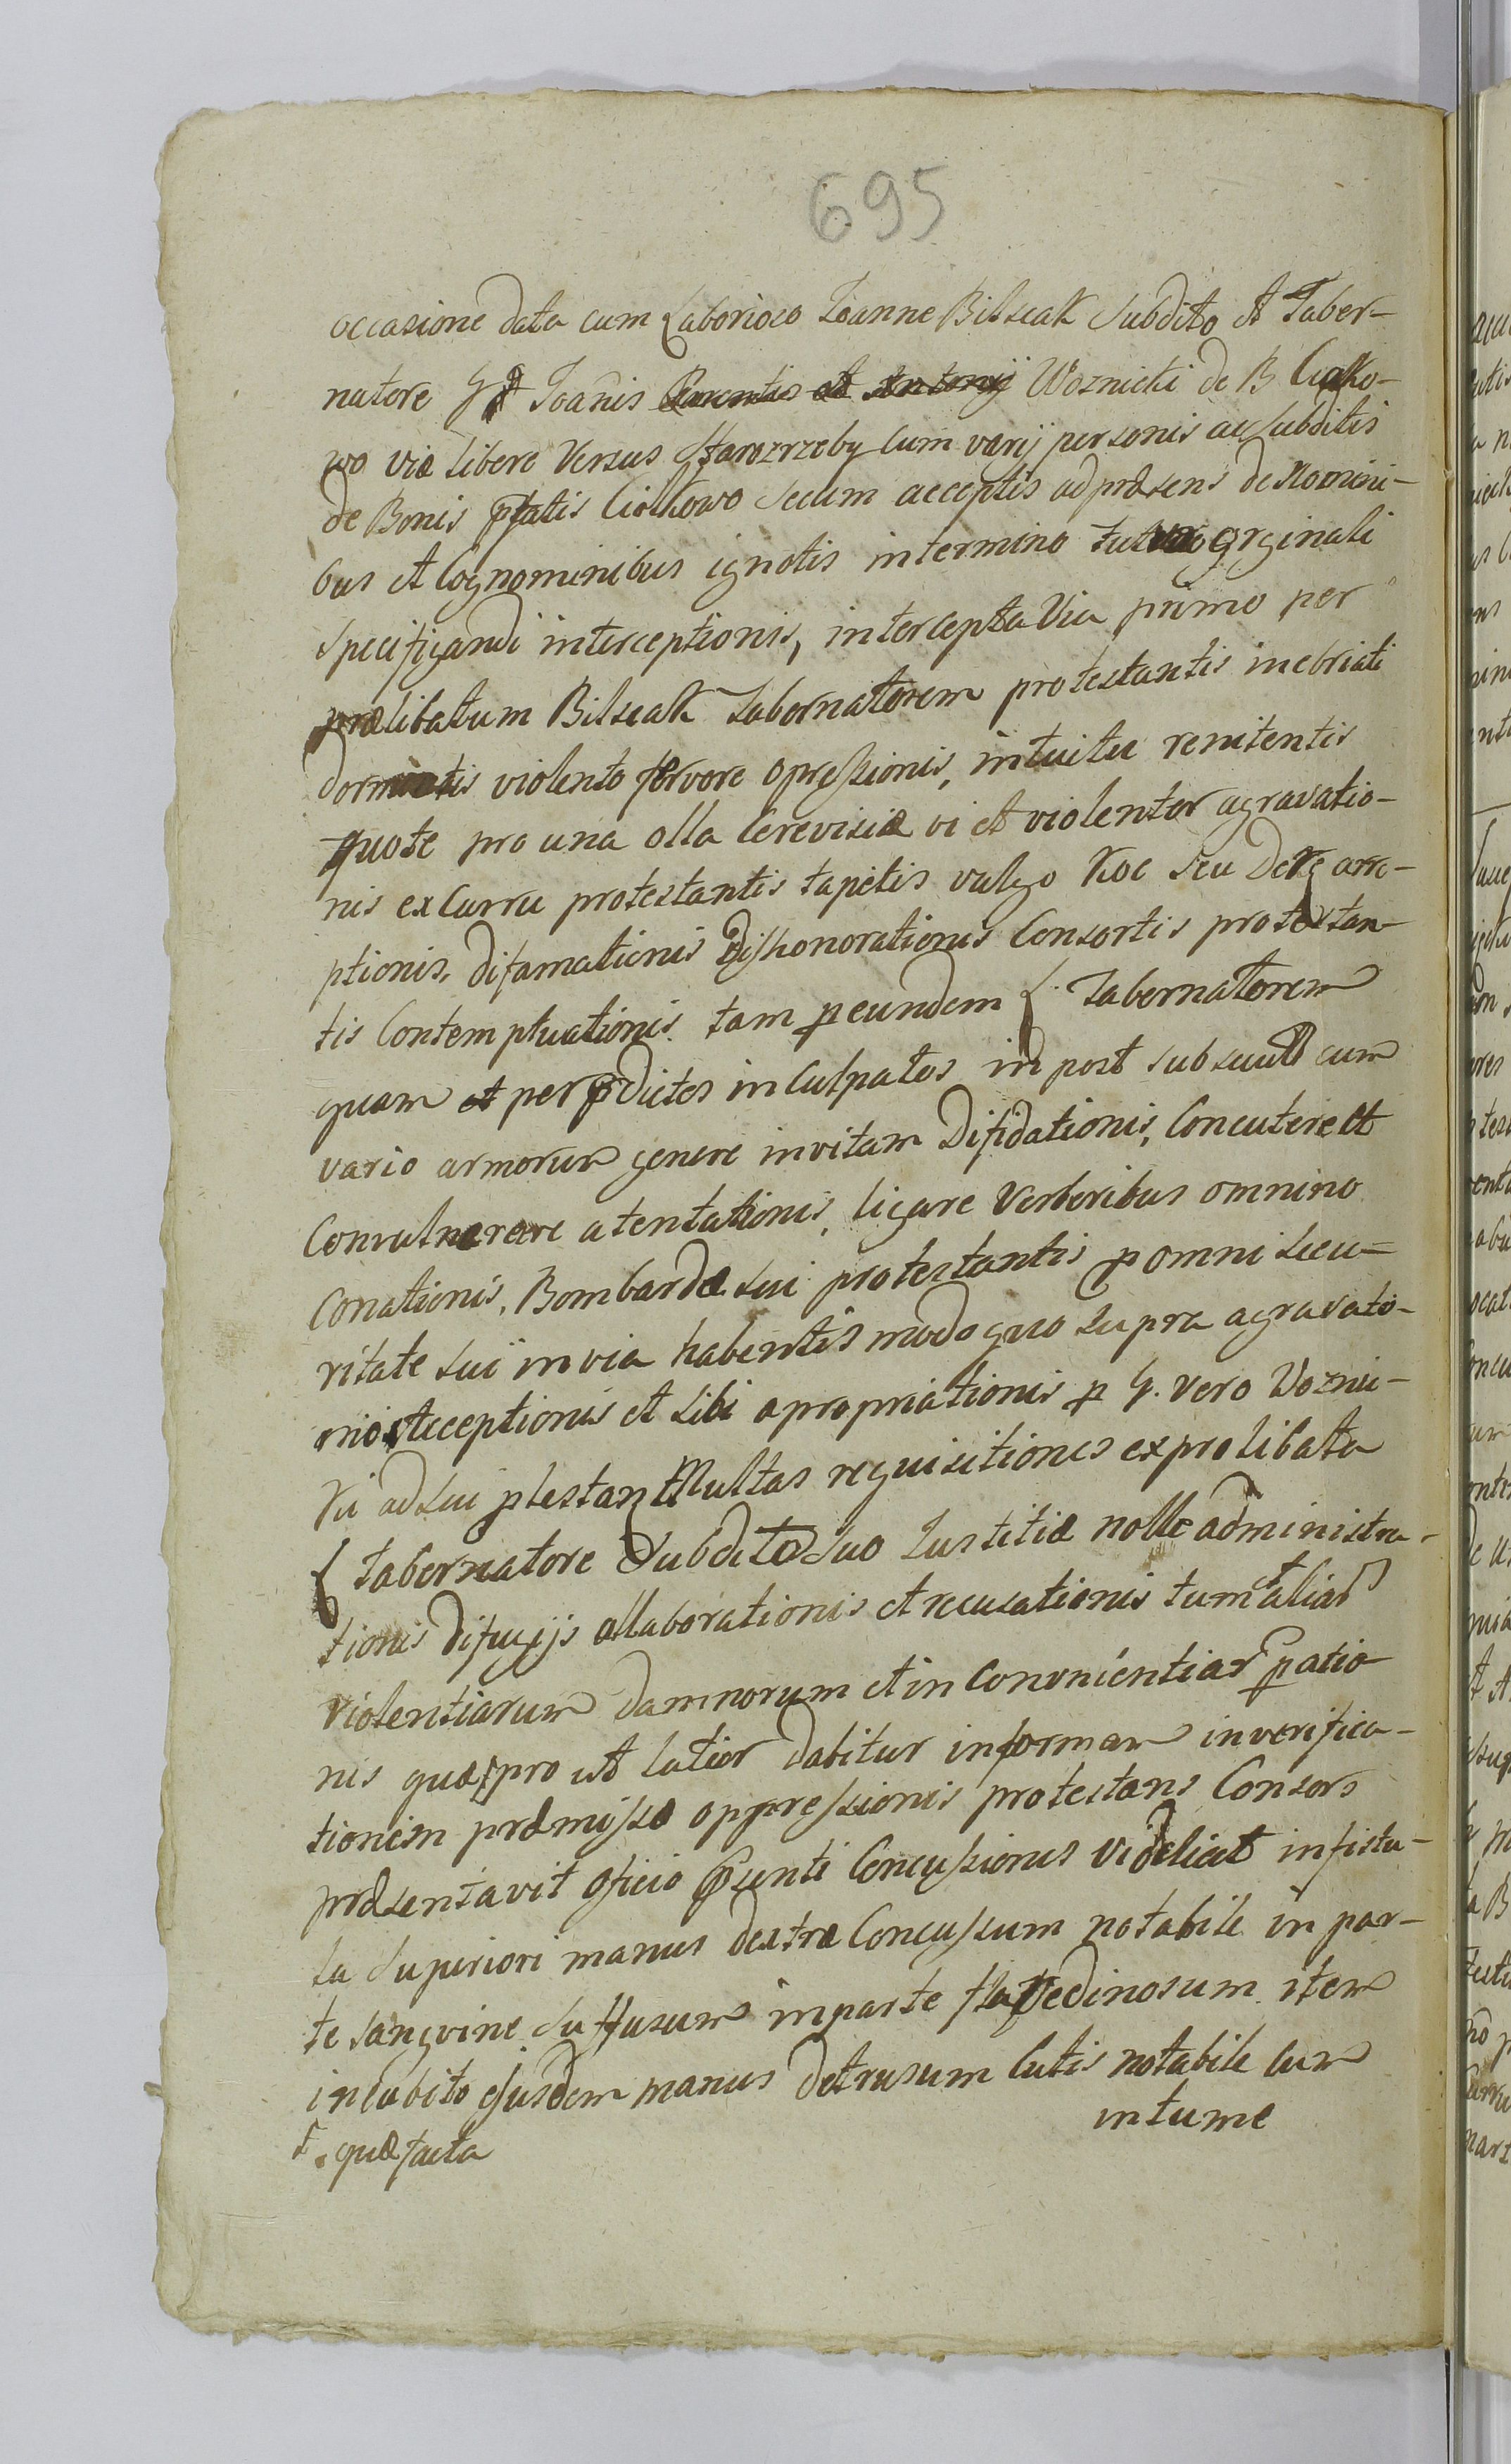 695
occasione data cum Laborioso Ioanne Bilscak Subdito et Taber-
natore G Joanis Parentis et Antonij Woznicki de B Ciolko-
wo via libere Versus Starozrzeby cum varij personis ac subditis
de Bonis pfatis Ciolkowo secum acceptis ad præsens de Nomini-
bus et Cognominibus ignotis in termino futuro orginali
specificandi interceptionis, intercepta Via primo per
prælibatum Bilscak Tabernatorem protestantis inebriati
dormientis violento fervore opressionis, intuitu renitentis
quote pro una olla Cerevisiæ vi et violenter agravatio-
nis ex Curru protestantis tapetis vulgo Koc seu Dekę arre-
ptionis, difamationis Dishonorationis Consortis protestan-
tis Contemptuationis. tam p eundem f. Tabernatorem
quam et per pdictos inculpatos in post subsecut cum
vario armorum genere in vitam Difidationis, Concutere et
Convulnerare atentationis, ligare Verberibus omnino
Conationis, Bombardæ sui protestantis p omni secu-
ritate sui in via habentis modo quo supra agravato-
rio Acceptionis et sibi apropriationis p G. vero Wozni-
ki ad sui ptestant Multas requisitiones ex prolibata
f tabernatore Subdito suo Iustitiæ nolle administra-
tionis difugijs allaborationis et recusationis tum et aliar
violentiarum damnorum et in convenientiar patio-
nis quæ f pro ut latior dabitur informan in verifica-
tionem præmissæ oppressionis protestans Consors
præsentavit oficio psenti Concussiones videlicet in fistu-
la superiori manus dextræ Concussum notabile in par-
te sangvine suffusum in parte flavedinosum. item
in Cubito ejusdem manus detrusum Cutis notabile cum
intume
f. quæ facta